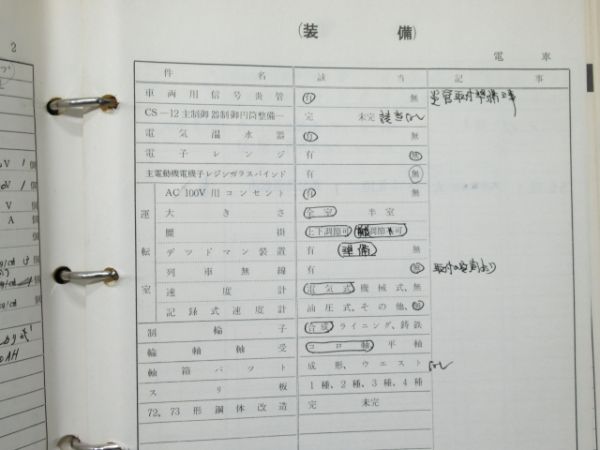 2
(装 備)
電車
件名 該当 記事
車両用信号炎管 有 無 炎管取付準備工事
CS-12主制御器制御円筒整備 完 未完 該当なし
電気温水器 有 無
電子レンジ 有 無
主電動機電機子レジンガラスバインド 有 無
運転室
AC 100V用コンセント 有 無
大きさ 全室 半室
腰掛 上下調節可
デッドマン装置 有 準備 無
列車無線 有 無
速度計 電気式 機械式、無
記録式速度計 油圧式、その他、無
制輪子 合成 ライニング、鋳鉄
輪軸軸受 コロ軸 平軸
軸箱パット 成形、ウエスト なし
スリ板 1種、2種、3種、4種
72, 73形鋼体改造 完 未完